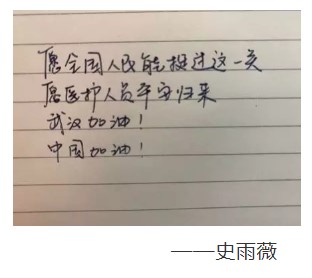 愿全国人民能挺过这一关
愿医护人员平安归来
武汉加油！
中国加油！
——史雨薇